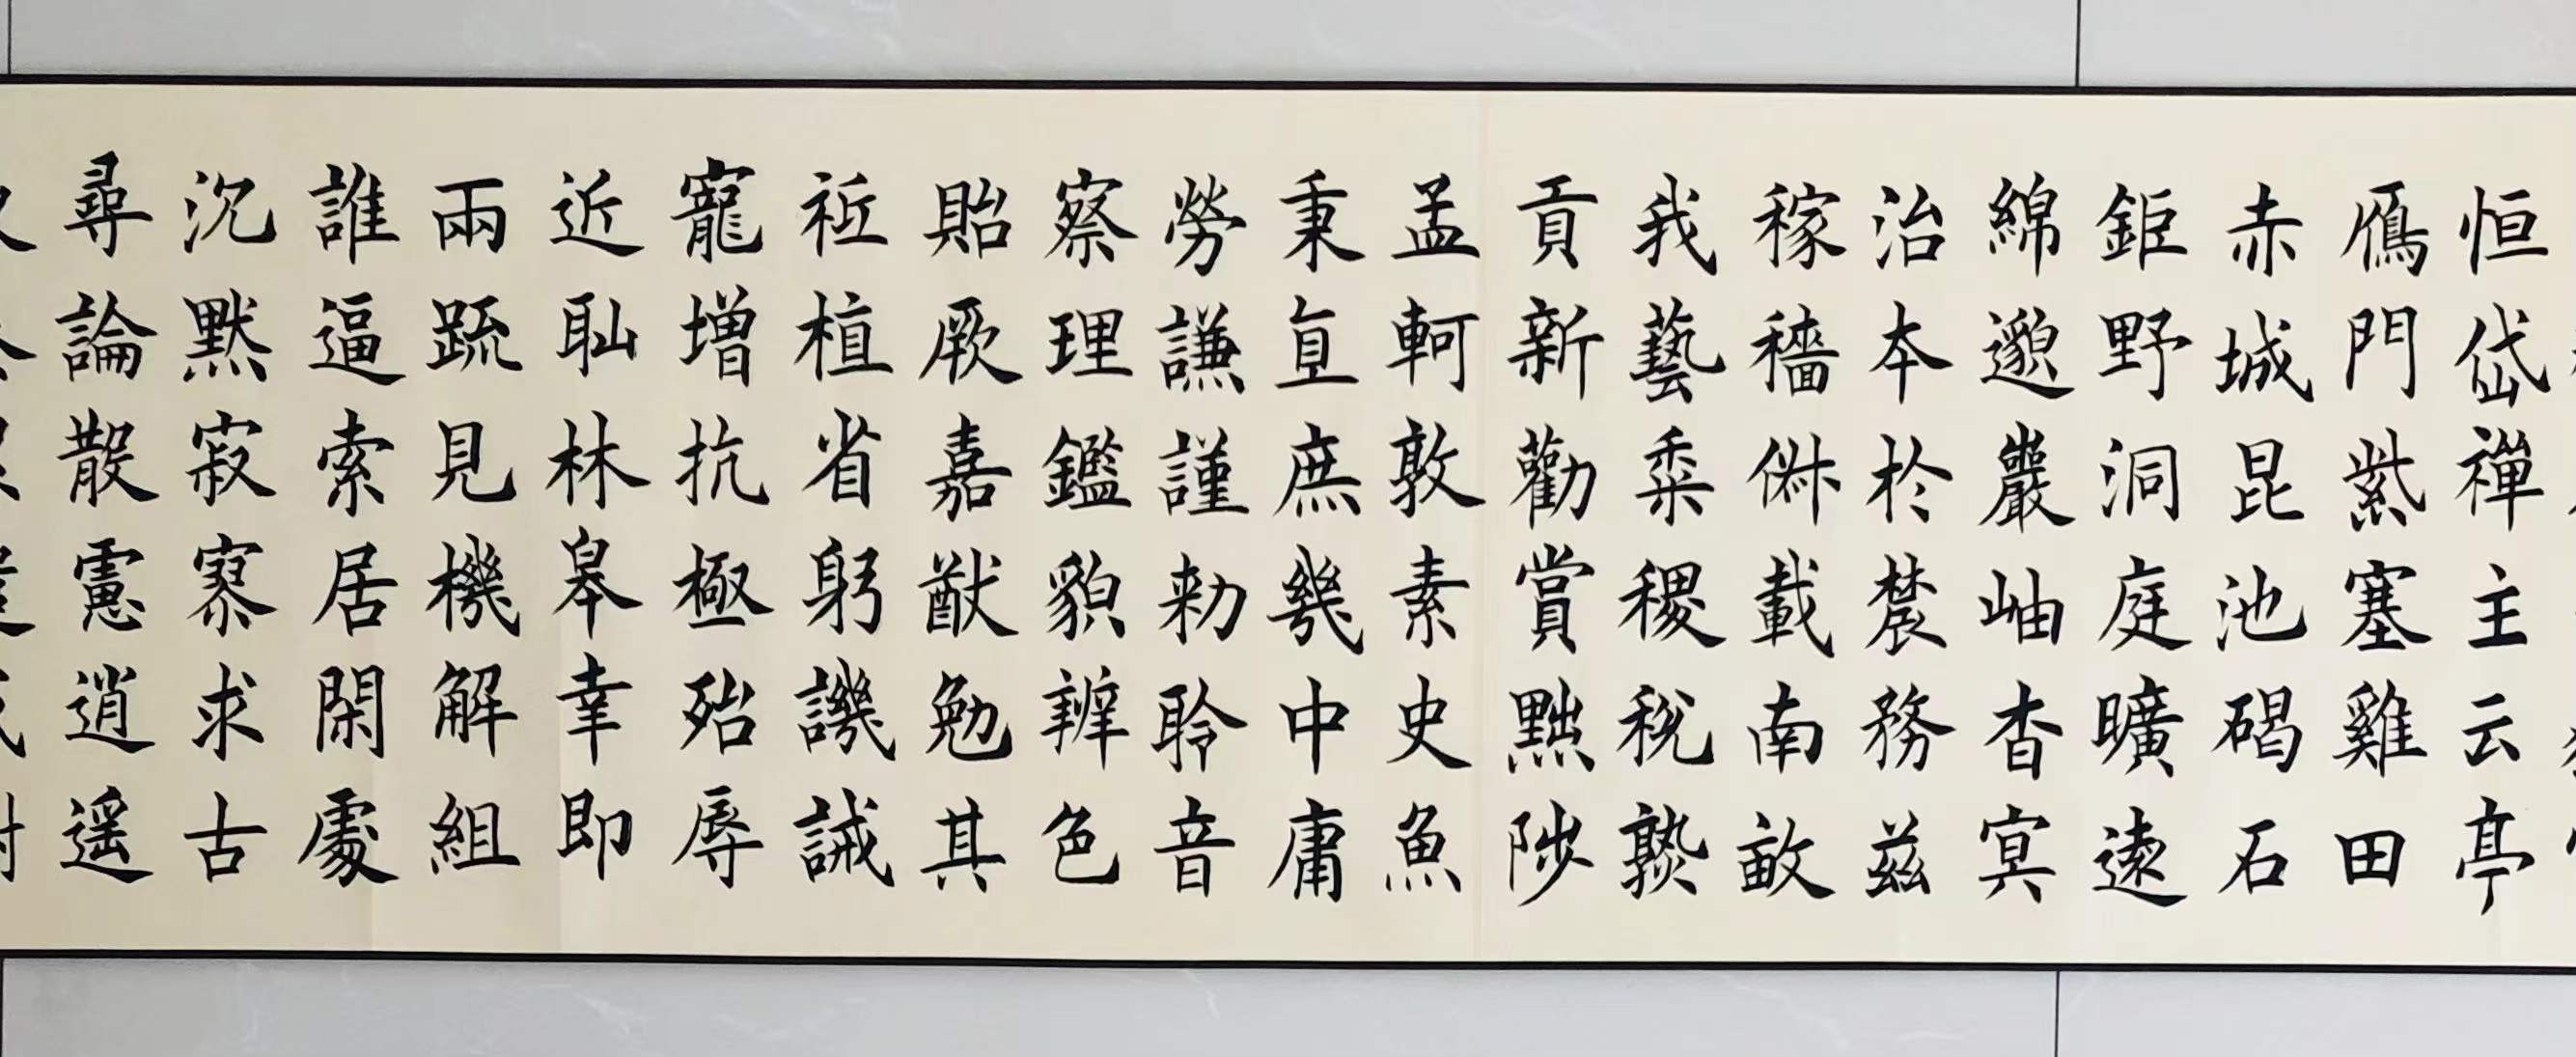 恒岱禪主云亭
鴈門紫塞雞田
赤城昆池碣石
鉅野洞庭曠遠
綿邈巖岫杳冥
治本於農務茲
稼穡俶載南畝
我藝黍稷稅熟
貢新勸賞黜陟
孟軻敦素史魚
秉直庶幾中庸
勞謙謹勑聆音
察理鑑貌辨色
貽厥嘉猷勉其
祗植省躬譏誡
寵增抗極殆辱
近耻林皋幸即
兩疏見機解組
誰逼索居閑處
沉黙寂寥求古
尋論散慮逍遥